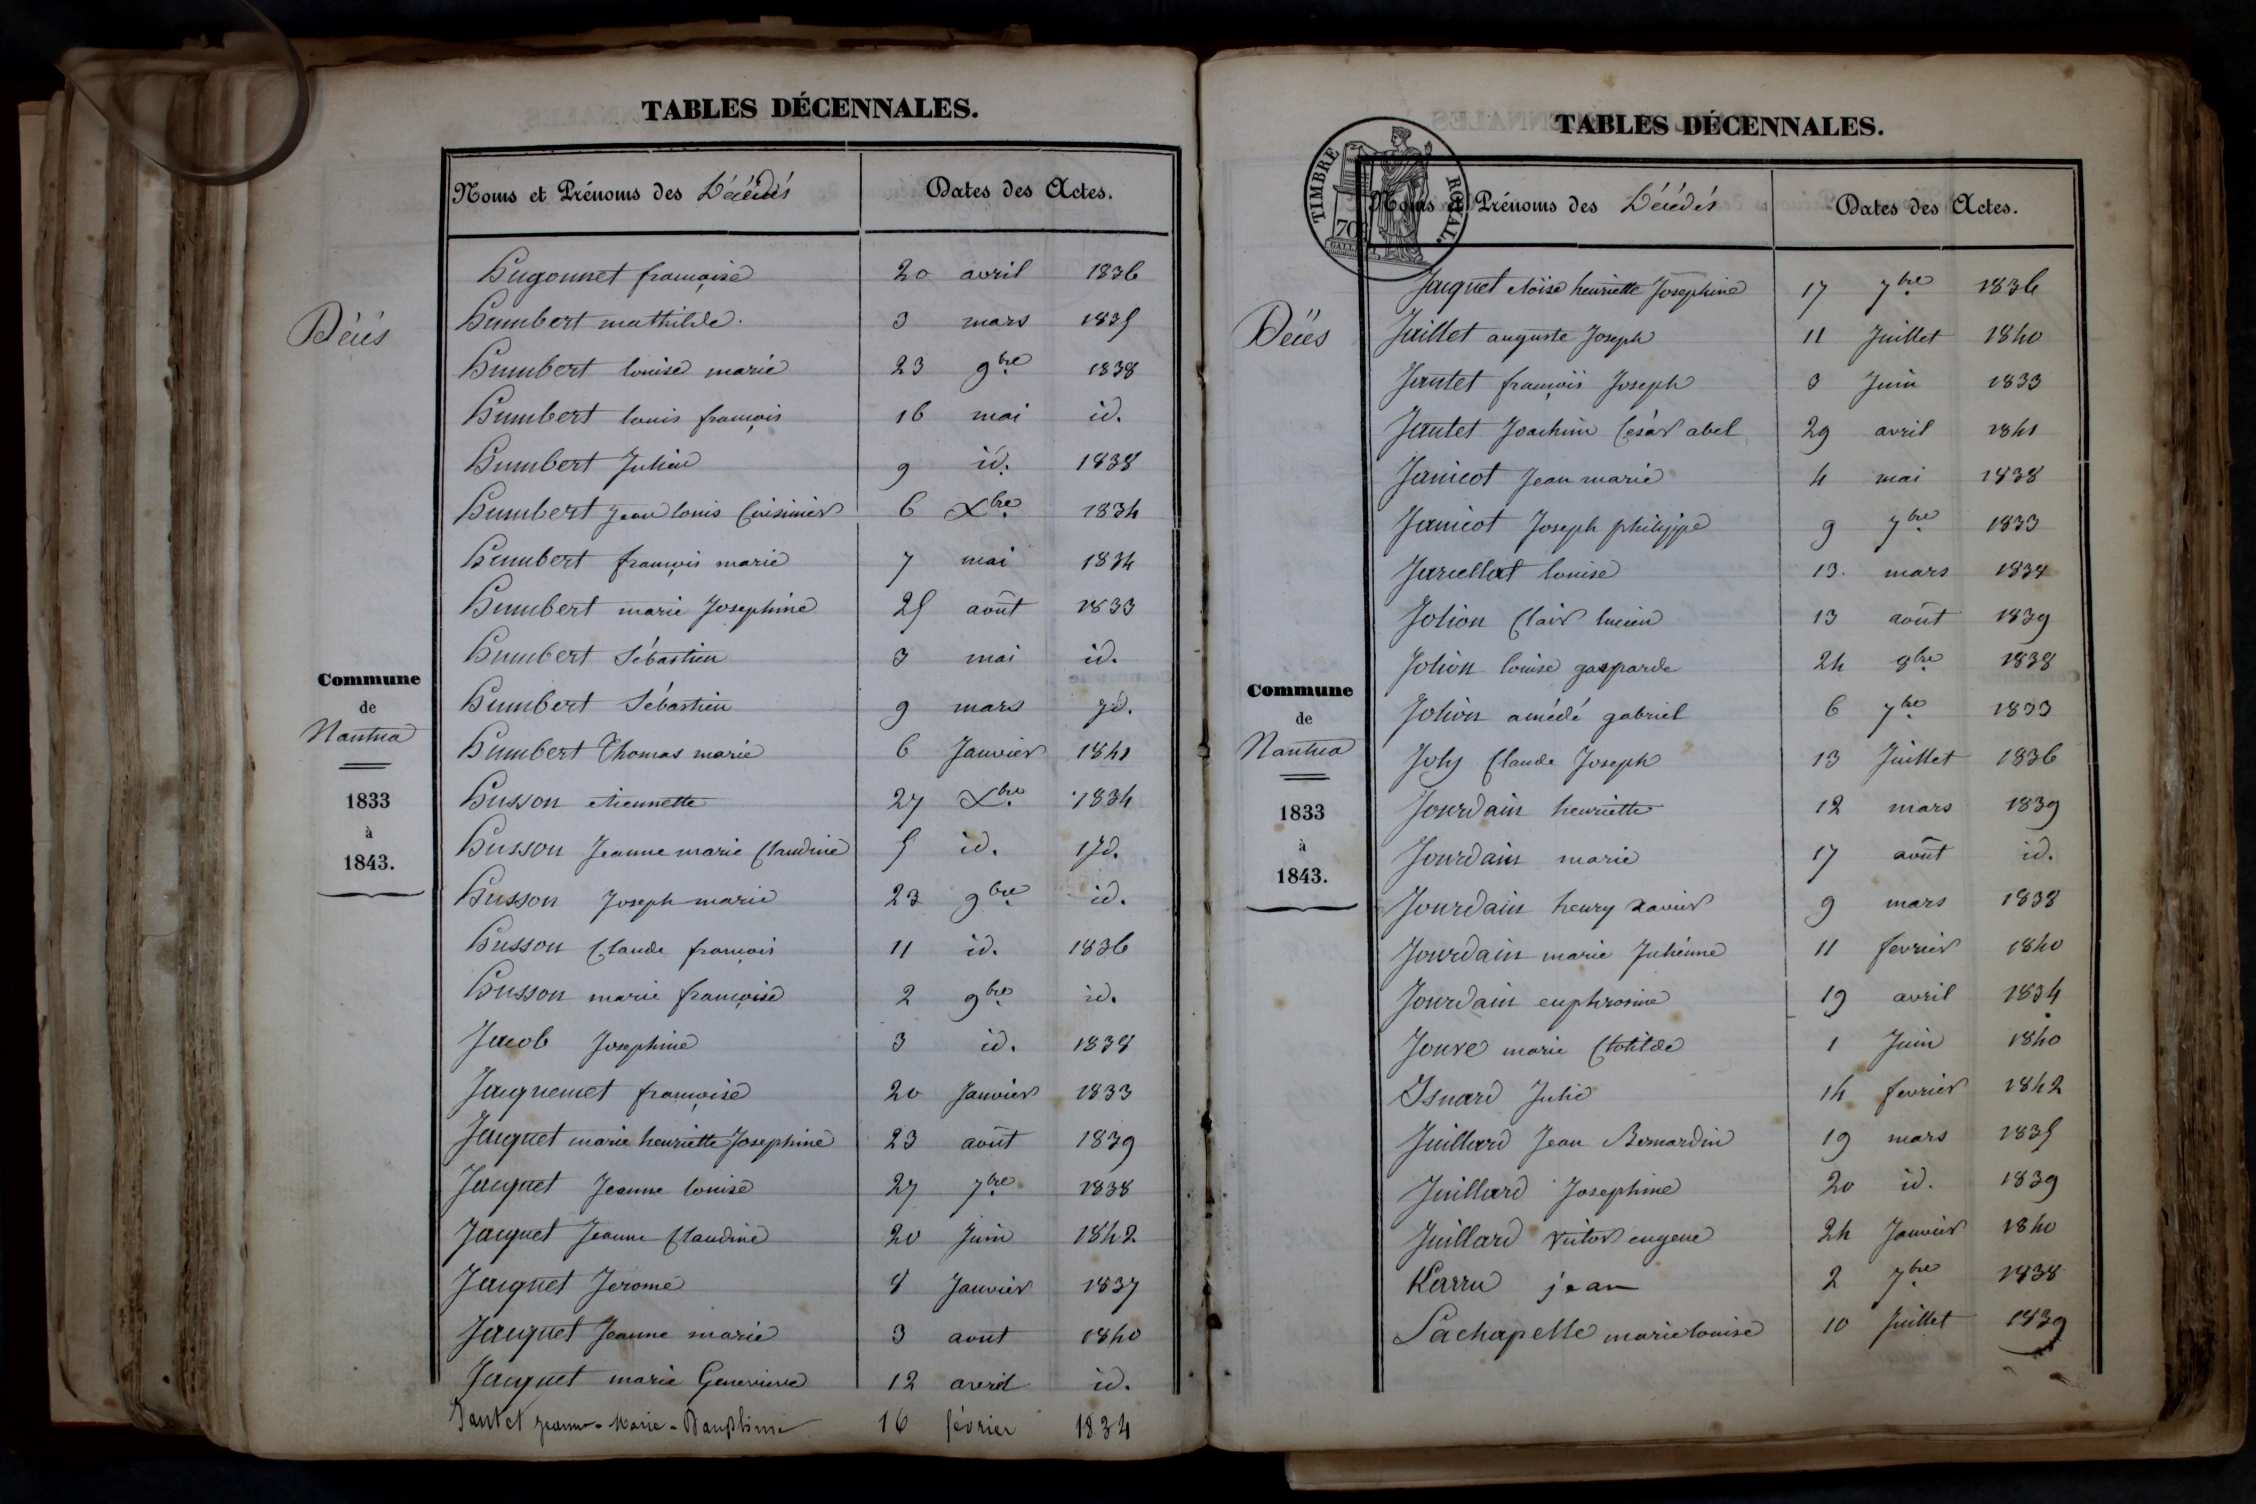 TABLES DÉCENNALES.
Noms et Prénoms des Décédés Dates des Actes.
Décés
Commune
de
Nantua
1833
à
1843.
Hugonnet françoise 20 avril 1836
Humbert mathilde. 3 mars 1835
Humbert louise marie 23 9bre 1838
Humbert louis françois 16 mai id.
Humbert Julien 9 id. 1838
Humbert Jean louis Cuisinier 6 Xbre 1834
Humbert françois marie 7 mai 1834
Humbert marie Josephine 25 août 1833
Humbert Sébastien 3 mai id.
Humbert Sébastien 9 mars id.
Humbert Thomas marie 6 Janvier 1841
Husson etiennette 27 Xbre 1834
Husson Jeanne marie Claudine 5 id. id.
Husson Joseph marie 23 9bre id.
Husson Claude françois 11 id. 1836
Husson marie françoise 2 9bre id.
Jacob Josephine 3 id. 1838
Jacquemet françoise 20 Janvier 1833
Jacquet marie henriette Josephine 23 août 1839
Jacquet Jeanne louise 27 7bre 1838
Jacquet Jeanne Claudine 20 Juin 1842
Jacquet Jerome 8 Janvier 1837
Jacquet Jeanne marie 3 aout 1840
Jacquet marie Genevieve 12 avril id.
Jantet Jeanne-Marie-Dauphine 16 février 1834
TABLES DÉCENNALES.
TIMBRE ROYAL.
70
Noms et Prénoms des Décédés Dates des Actes.
Décés
Commune
de
Nantua
1833
à
1843.
Jacquet eloise henriette Josephine 17 7bre 1836
Jaillet auguste Joseph 11 Juillet 1840
Jantet françois Joseph 3 Juin 1833
Jantet Joachim César abel 29 avril 1841
Janicot Jean marie 4 mai 1838
Janicot Joseph philippe 9 7bre 1833
Jarcellat louise 13. mars 1834
Jolion Clair lucien 13 août 1839
Jolion louise gasparde 24 8bre 1838
Jolion amédé gabriel 6 7bre 1833
Joly Claude Joseph 13 Juillet 1836
Jourdain henriette 12 mars 1839
Jourdain marie 17 août id.
Jourdain henry xavier 9 mars 1838
Jourdain marie Julienne 11 fevrier 1840
Jourdain euphrosine 19 avril 1834
Jouve marie Clotilde 1 Juin 1840
Isnard Julie 14 fevrier 1842
Juillard Jean Bernardin 19 mars 1835
Juillard Josephine 20 id. 1839
Juillard victor eugene 24 Janvier 1840
Karru jean 2 7bre 1838
Lachapelle marie louise 10 Juillet 1839